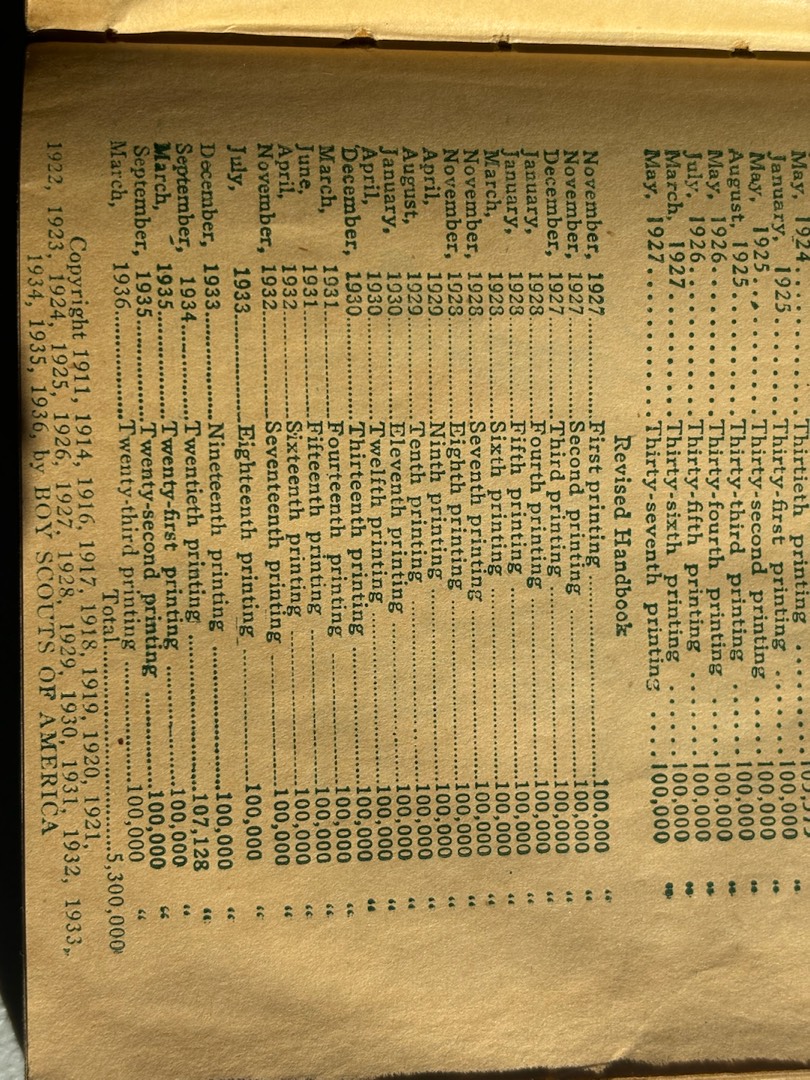 May, 1924........Thirtieth printing ........
January, 1925........Thirty-first printing ......100,000 “
May, 1925........Thirty-second printing .....100,000 “
August, 1925........Thirty-third printing .....100,000 “
May, 1926........Thirty-fourth printing .....100,000 “
July, 1926........Thirty-fifth printing ......100,000 “
March, 1927........Thirty-sixth printing .....100,000 “
May, 1927........Thirty-seventh printing ....100,000 “
Revised Handbook
November, 1927........First printing ........100,000 “
November, 1927........Second printing ........100,000 “
December, 1927........Third printing ........100,000 “
January, 1928........Fourth printing ........100,000 “
January, 1928........Fifth printing ........100,000 “
March, 1928........Sixth printing ........100,000 “
November, 1928........Seventh printing ........100,000 “
November, 1928........Eighth printing ........100,000 “
April, 1929........Ninth printing ........100,000 “
August, 1929........Tenth printing ........100,000 “
January, 1930........Eleventh printing ........100,000 “
April, 1930........Twelfth printing ........100,000 “
December, 1930........Thirteenth printing ........100,000 “
March, 1931........Fourteenth printing ........100,000 “
June, 1931........Fifteenth printing ........100,000 “
April, 1932........Sixteenth printing ........100,000 “
November, 1932........Seventeenth printing ........100,000 “
July, 1933........Eighteenth printing ........100,000 “
December, 1933........Nineteenth printing ........100,000 “
September, 1934........Twentieth printing ........107,128 “
March, 1935........Twenty-first printing ........100,000 “
September, 1935........Twenty-second printing ........100,000 “
March, 1936........Twenty-third printing ........100,000 “
Total........5,300,000
Copyright 1911, 1914, 1916, 1917, 1918, 1919, 1920, 1921,
1922, 1923, 1924, 1925, 1926, 1927, 1928, 1929, 1930, 1931, 1932, 1933,
1934, 1935, 1936, by BOY SCOUTS OF AMERICA